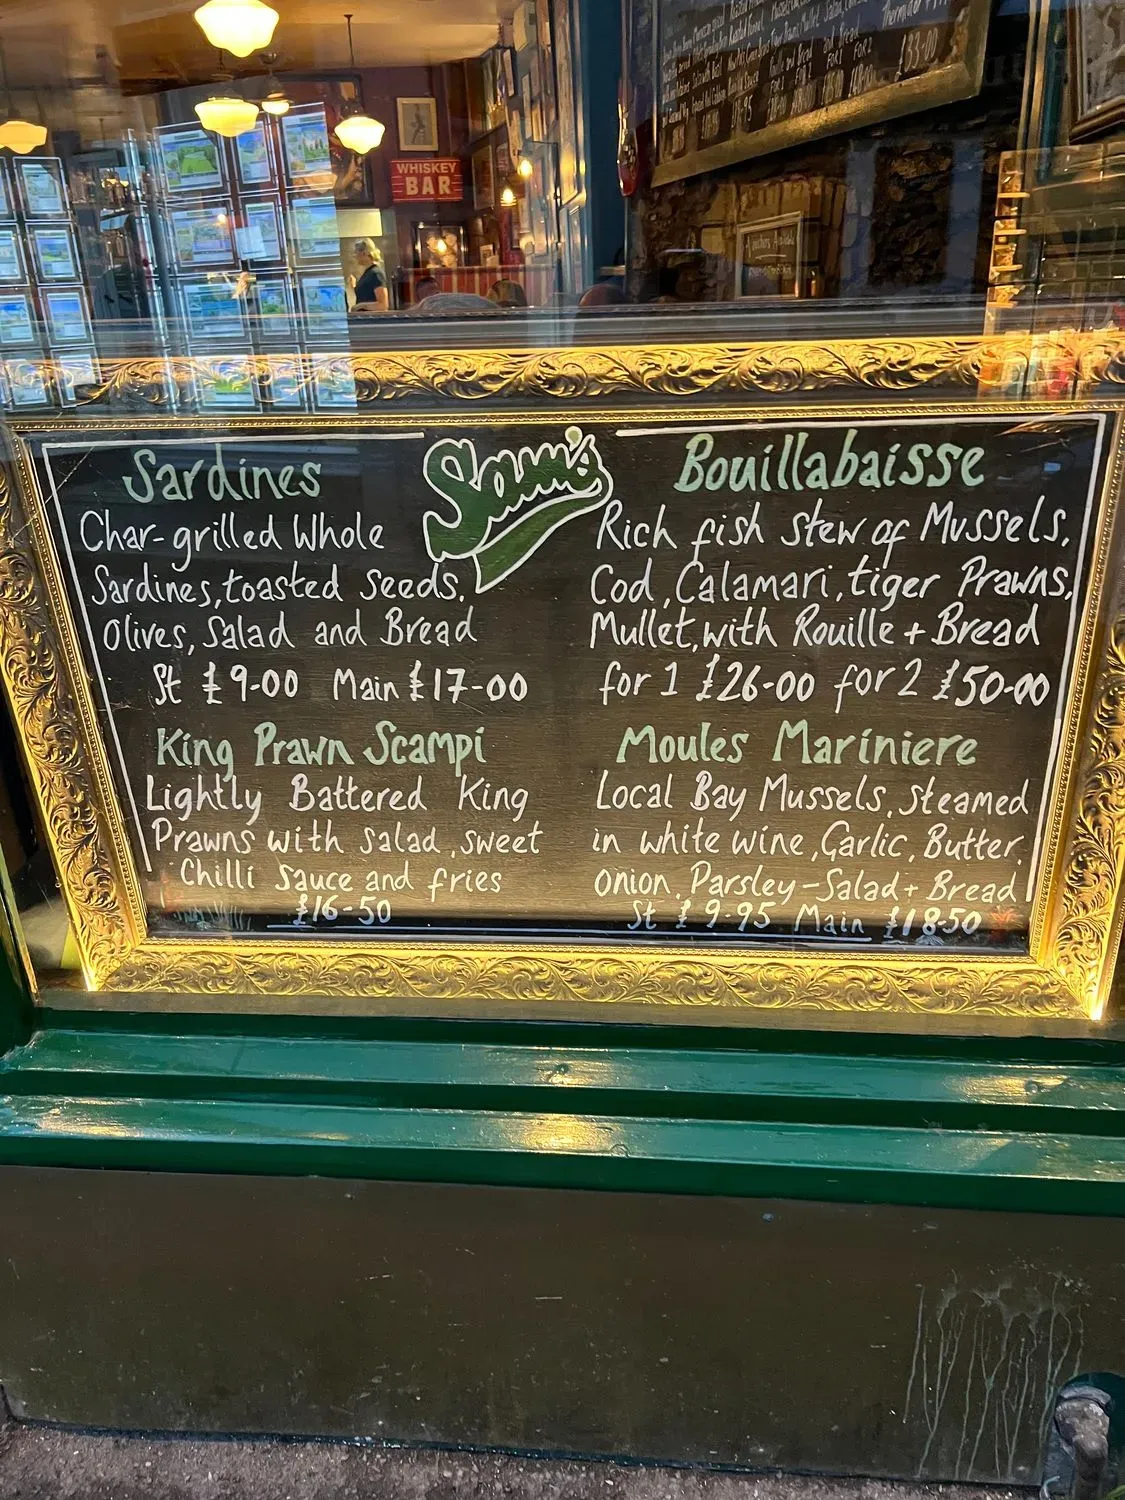 WHISKEY
BAR
£83-00
Sam's
Sardines
Char-grilled Whole
Sardines, toasted seeds,
Olives, Salad and Bread
St £9-00 Main £17-00
King Prawn Scampi
Lightly Battered King
Prawns with salad, sweet
Chilli Sauce and fries
£16-50
Bouillabaisse
Rich fish stew of Mussels,
Cod, Calamari, tiger Prawns,
Mullet, with Rouille + Bread
for 1 £26-00 for 2 £50-00
Moules Mariniere
Local Bay Mussels, steamed
in white wine, Garlic, Butter,
onion, Parsley - Salad + Bread
St £9-95 Main £18-50